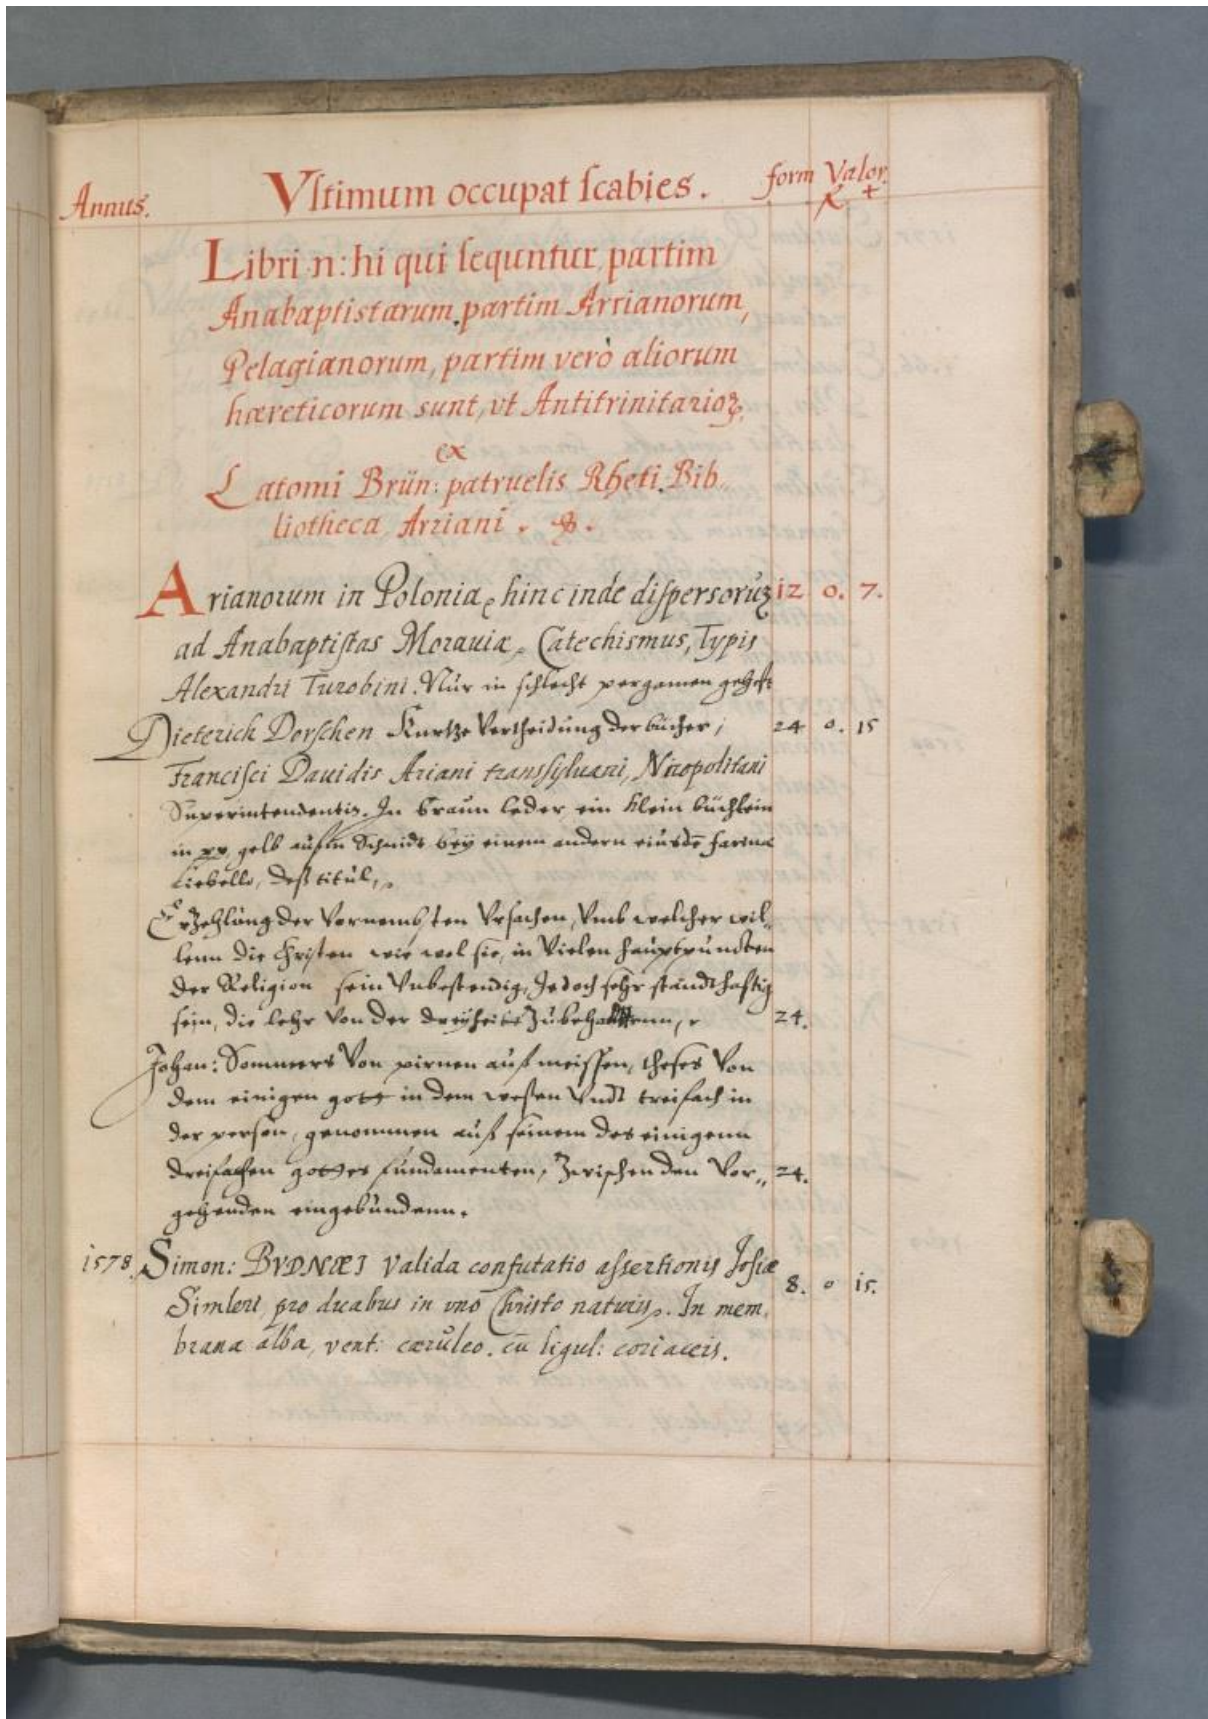 Annus. Vltimum occupat scabies. form Valor.
R +
Libri n: hi qui sequntur partim
Anabaptistarum, partim Arrianorum,
Pelagianorum, partim verò aliorum
hæreticorum sunt, vt Antitrinitarioꝝ.
ex
Latomi Brün: patruelis Rheti Bib
liotheca Arriani. &.
Arianorum in Polonia hinc inde dispersorũ 12 0. 7.
ad Anabaptistas Morauiæ, Catechismus, Typis
Alexandri Turobini. Nůr in schlecht pergamen gehefft
Dieterich Dorschen Kurtze Vertheidůng der bücher, 24 0. 15
Francisci Dauidis Ariani transsyluani, Niropolitani
Superintendentis. In braun leder ein klein büchlein
in gelb aufm Schnidt bey einem andern eiusdē farinæ
Liebello, deß titůl,
Erzehlůng der Vornembsten Vrsachen, Vmb welcher wil„
lenn die Christen wie wol sie, in Vielen hauptpůncten
der Religion sein Vnbestendig, Jedoch sehr standthafftig
sein, die lehr Von der dreyheit Zůbehalttenn, 24.
Johan: Sommers Von pirnen auß meissen, theses Von
dem einigen gott in dem wesen Vndt treifach in
der person, genommen auß seinem des einigenn
dreifachen gottes fůndamenten, Zwischen den Vor„ 24.
gehenden eingebůndenn.
1578. Simon: BVDNÆI Valida confutatio assertionis Josiæ
Simleri pro duabus in vno Christo naturis. In mem 8. 0 15.
brana alba, vent: cærůleo. cū ligul: coriaceis.